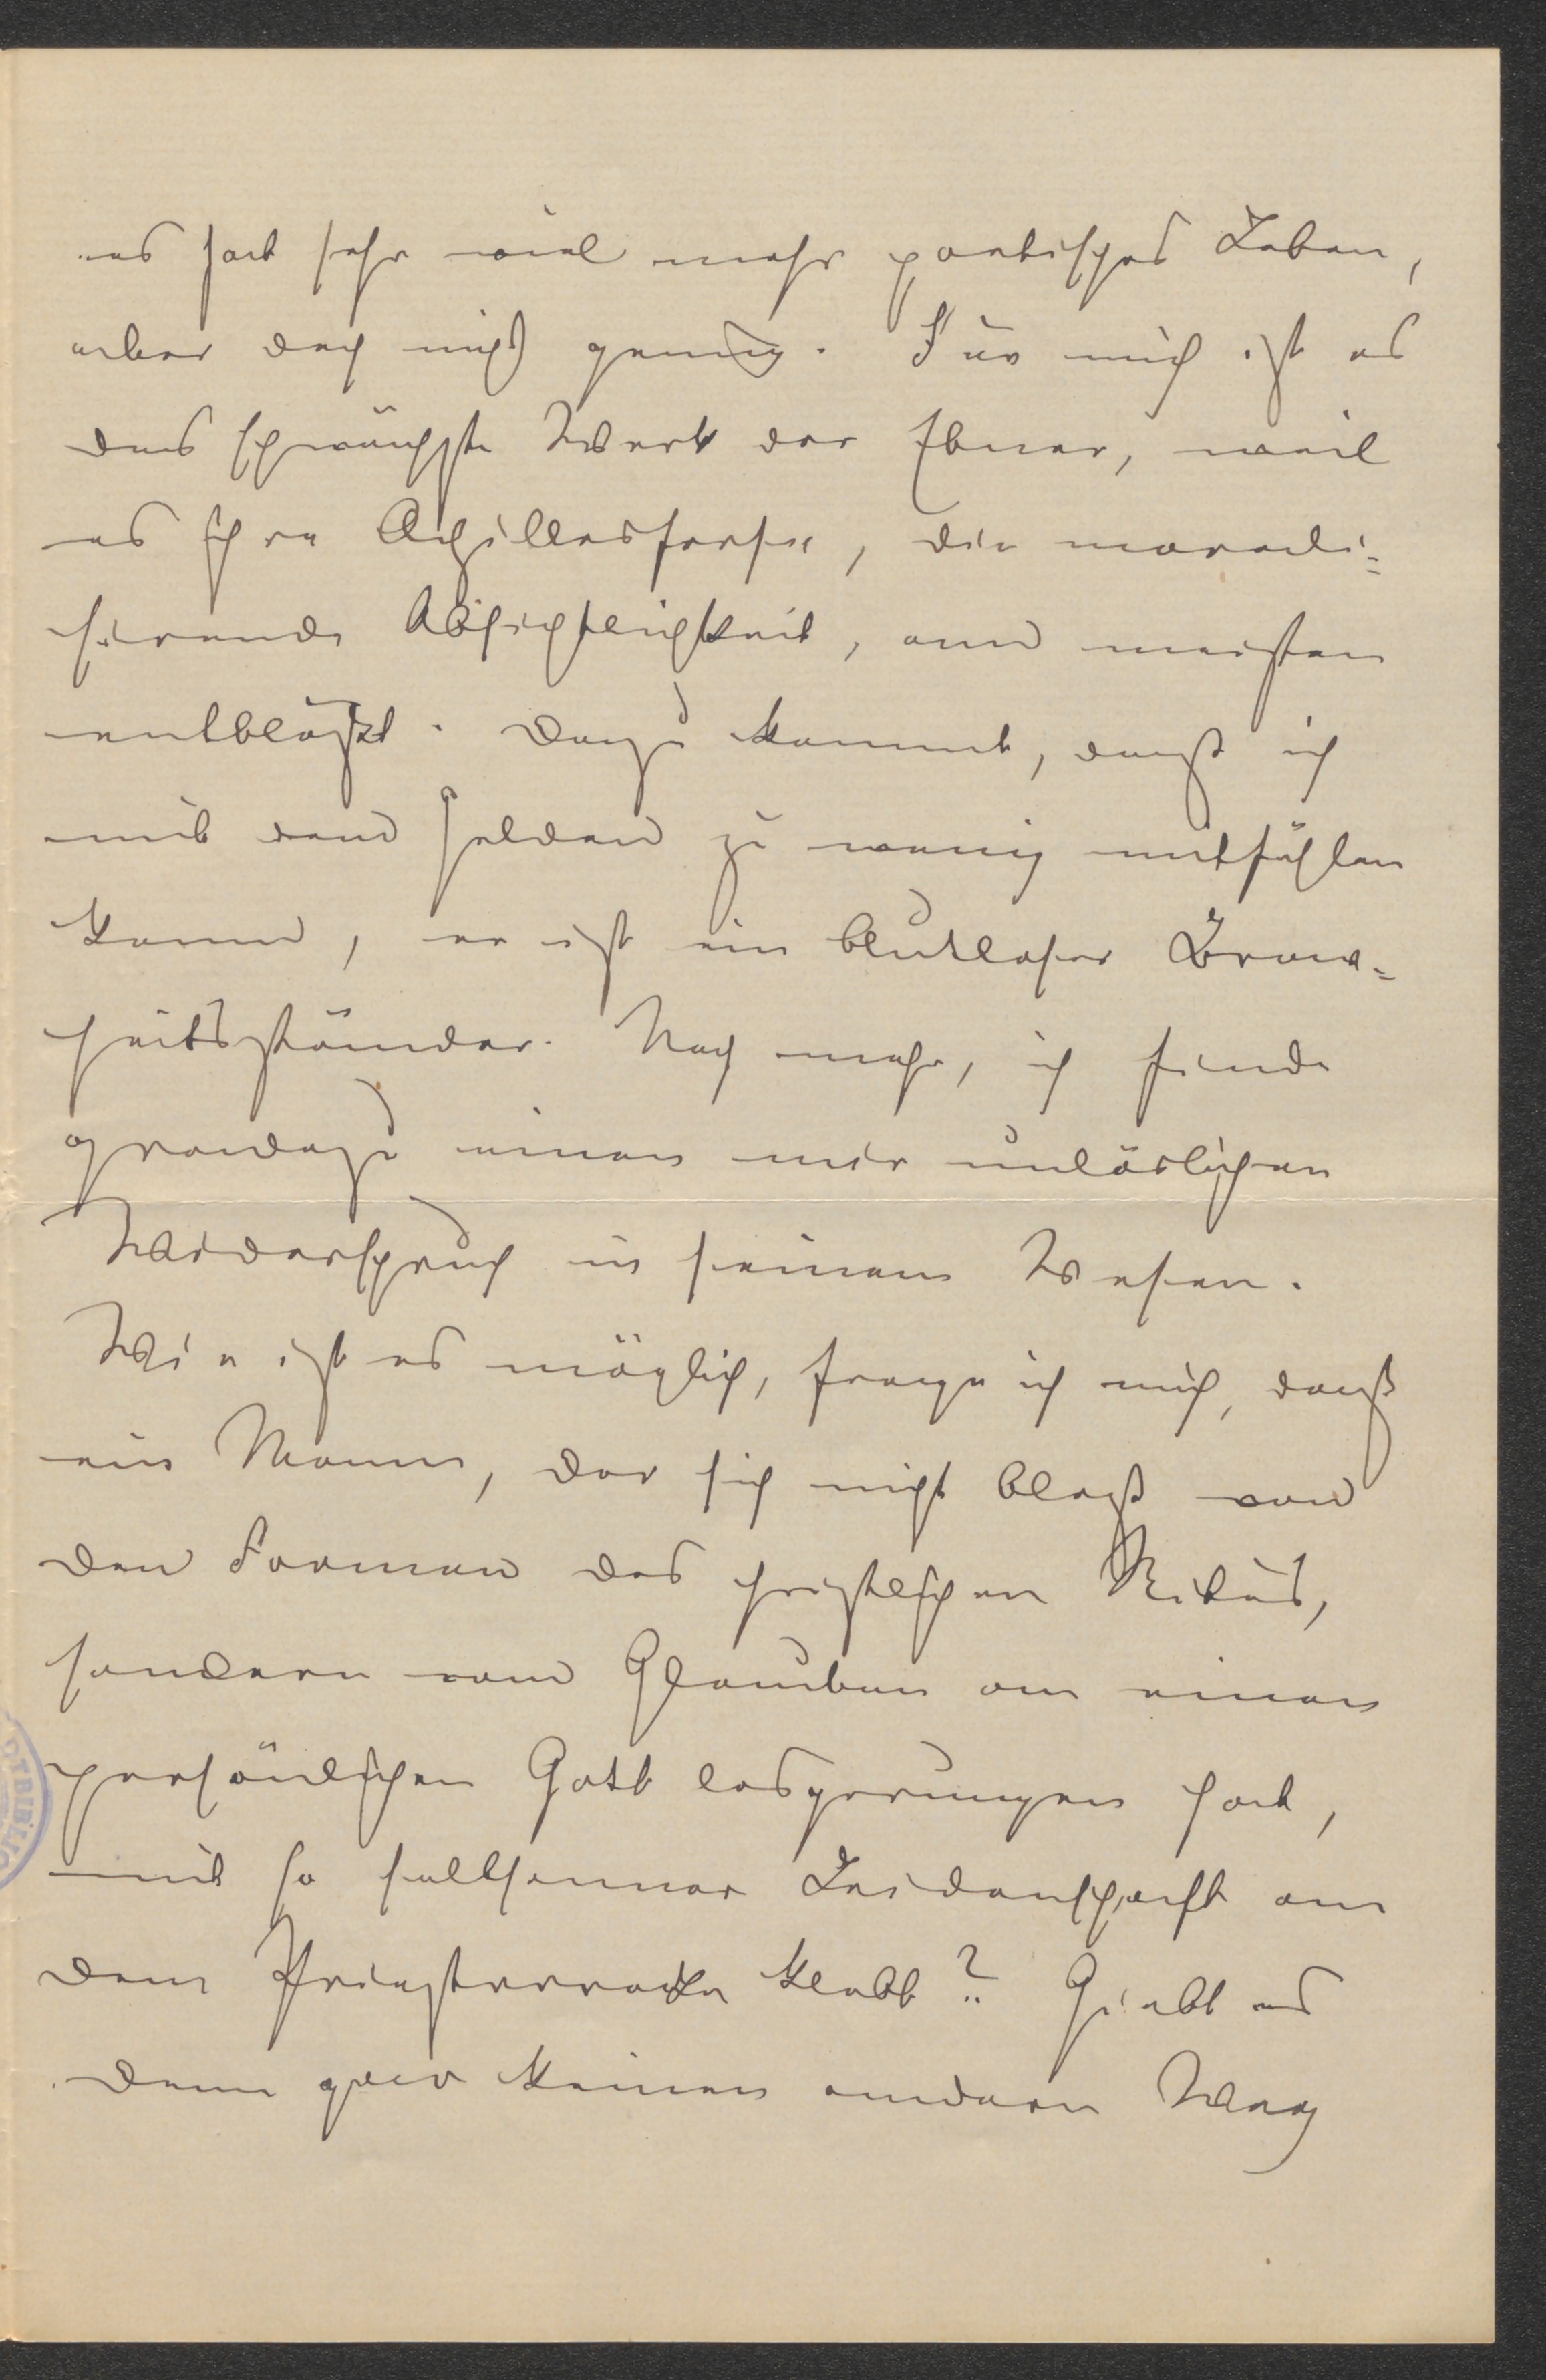 es hat sehr viel mehr poetisches Leben,
aber doch nicht genug. Für mich ist es
das schwächste Werk der Ebner, weil
es ihre Achillesferse, die morali=
sirende Absichtlichkeit, am meisten
entblößt. Dazu kommt, daß ich
mit dem Helden zu wenig mitfühlen
kann, er ist ein blutloser Brav=
heitsständer. Noch mehr, ich finde
gradezu einen mir unlöslichen
Widerspruch in seinem Wesen.
Wie ist es möglich, frage ich mich, daß
ein Mann, der sich nicht bloß von
den Formen des christlichen Ritus,
sondern vom Glauben an einen
persönlichen Gott losgerungen hat,
mit so seltsamer Leidenschaft an
dem Priesterrocke klebt? Giebt es
denn gar keinen andern Weg